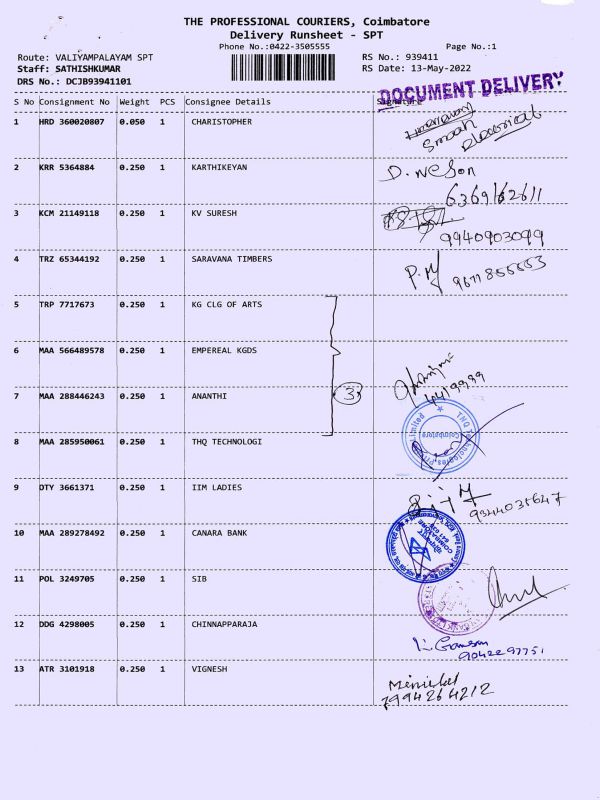 THE PROFESSIONAL COURIERS, Coimbatore
Delivery Runsheet - SPT
Phone No.:0422-3505555
Page No.:1
Route: VALIYAMPALAYAM SPT
RS No.: 939411
Staff: SATHISHKUMAR
RS Date: 13-May-2022
DRS No.: DCJB93941101
DOCUMENT DELIVERY
S No Consignment No Weight PCS Consignee Details Signature
1 HRD 360020807 0.050 1 CHARISTOPHER
2 KRR 5364884 0.250 1 KARTHIKEYAN D. Nelson
6369162611
3 KCM 21149118 0.250 1 KV SURESH
9940903099
4 TRZ 65344192 0.250 1 SARAVANA TIMBERS P.M
5 TRP 7717673 0.250 1 KG CLG OF ARTS
6 MAA 566489578 0.250 1 EMPEREAL KGDS
7 MAA 288446243 0.250 1 ANANTHI 3
8 MAA 285950061 0.250 1 THQ TECHNOLOGI
TNQ Technologies Limited
Coimbatore
9 DTY 3661371 0.250 1 IIM LADIES
9344035647
10 MAA 289278492 0.250 1 CANARA BANK
11 POL 3249705 0.250 1 SIB
12 DDG 4298005 0.250 1 CHINNAPPARAJA
9042297751
13 ATR 3101918 0.250 1 VIGNESH
7994264212